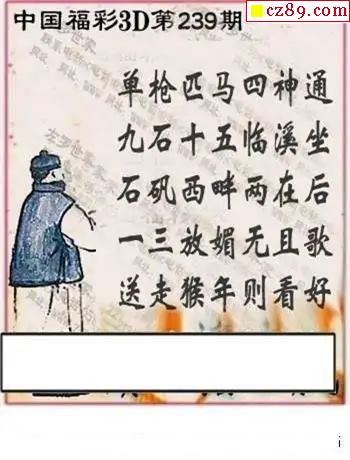 cz89.com
中国福彩3D第239期
单枪匹马四神通
九石十五临溪坐
石矶西畔两在后
一三放媚无且歌
送走猴年则看好
i